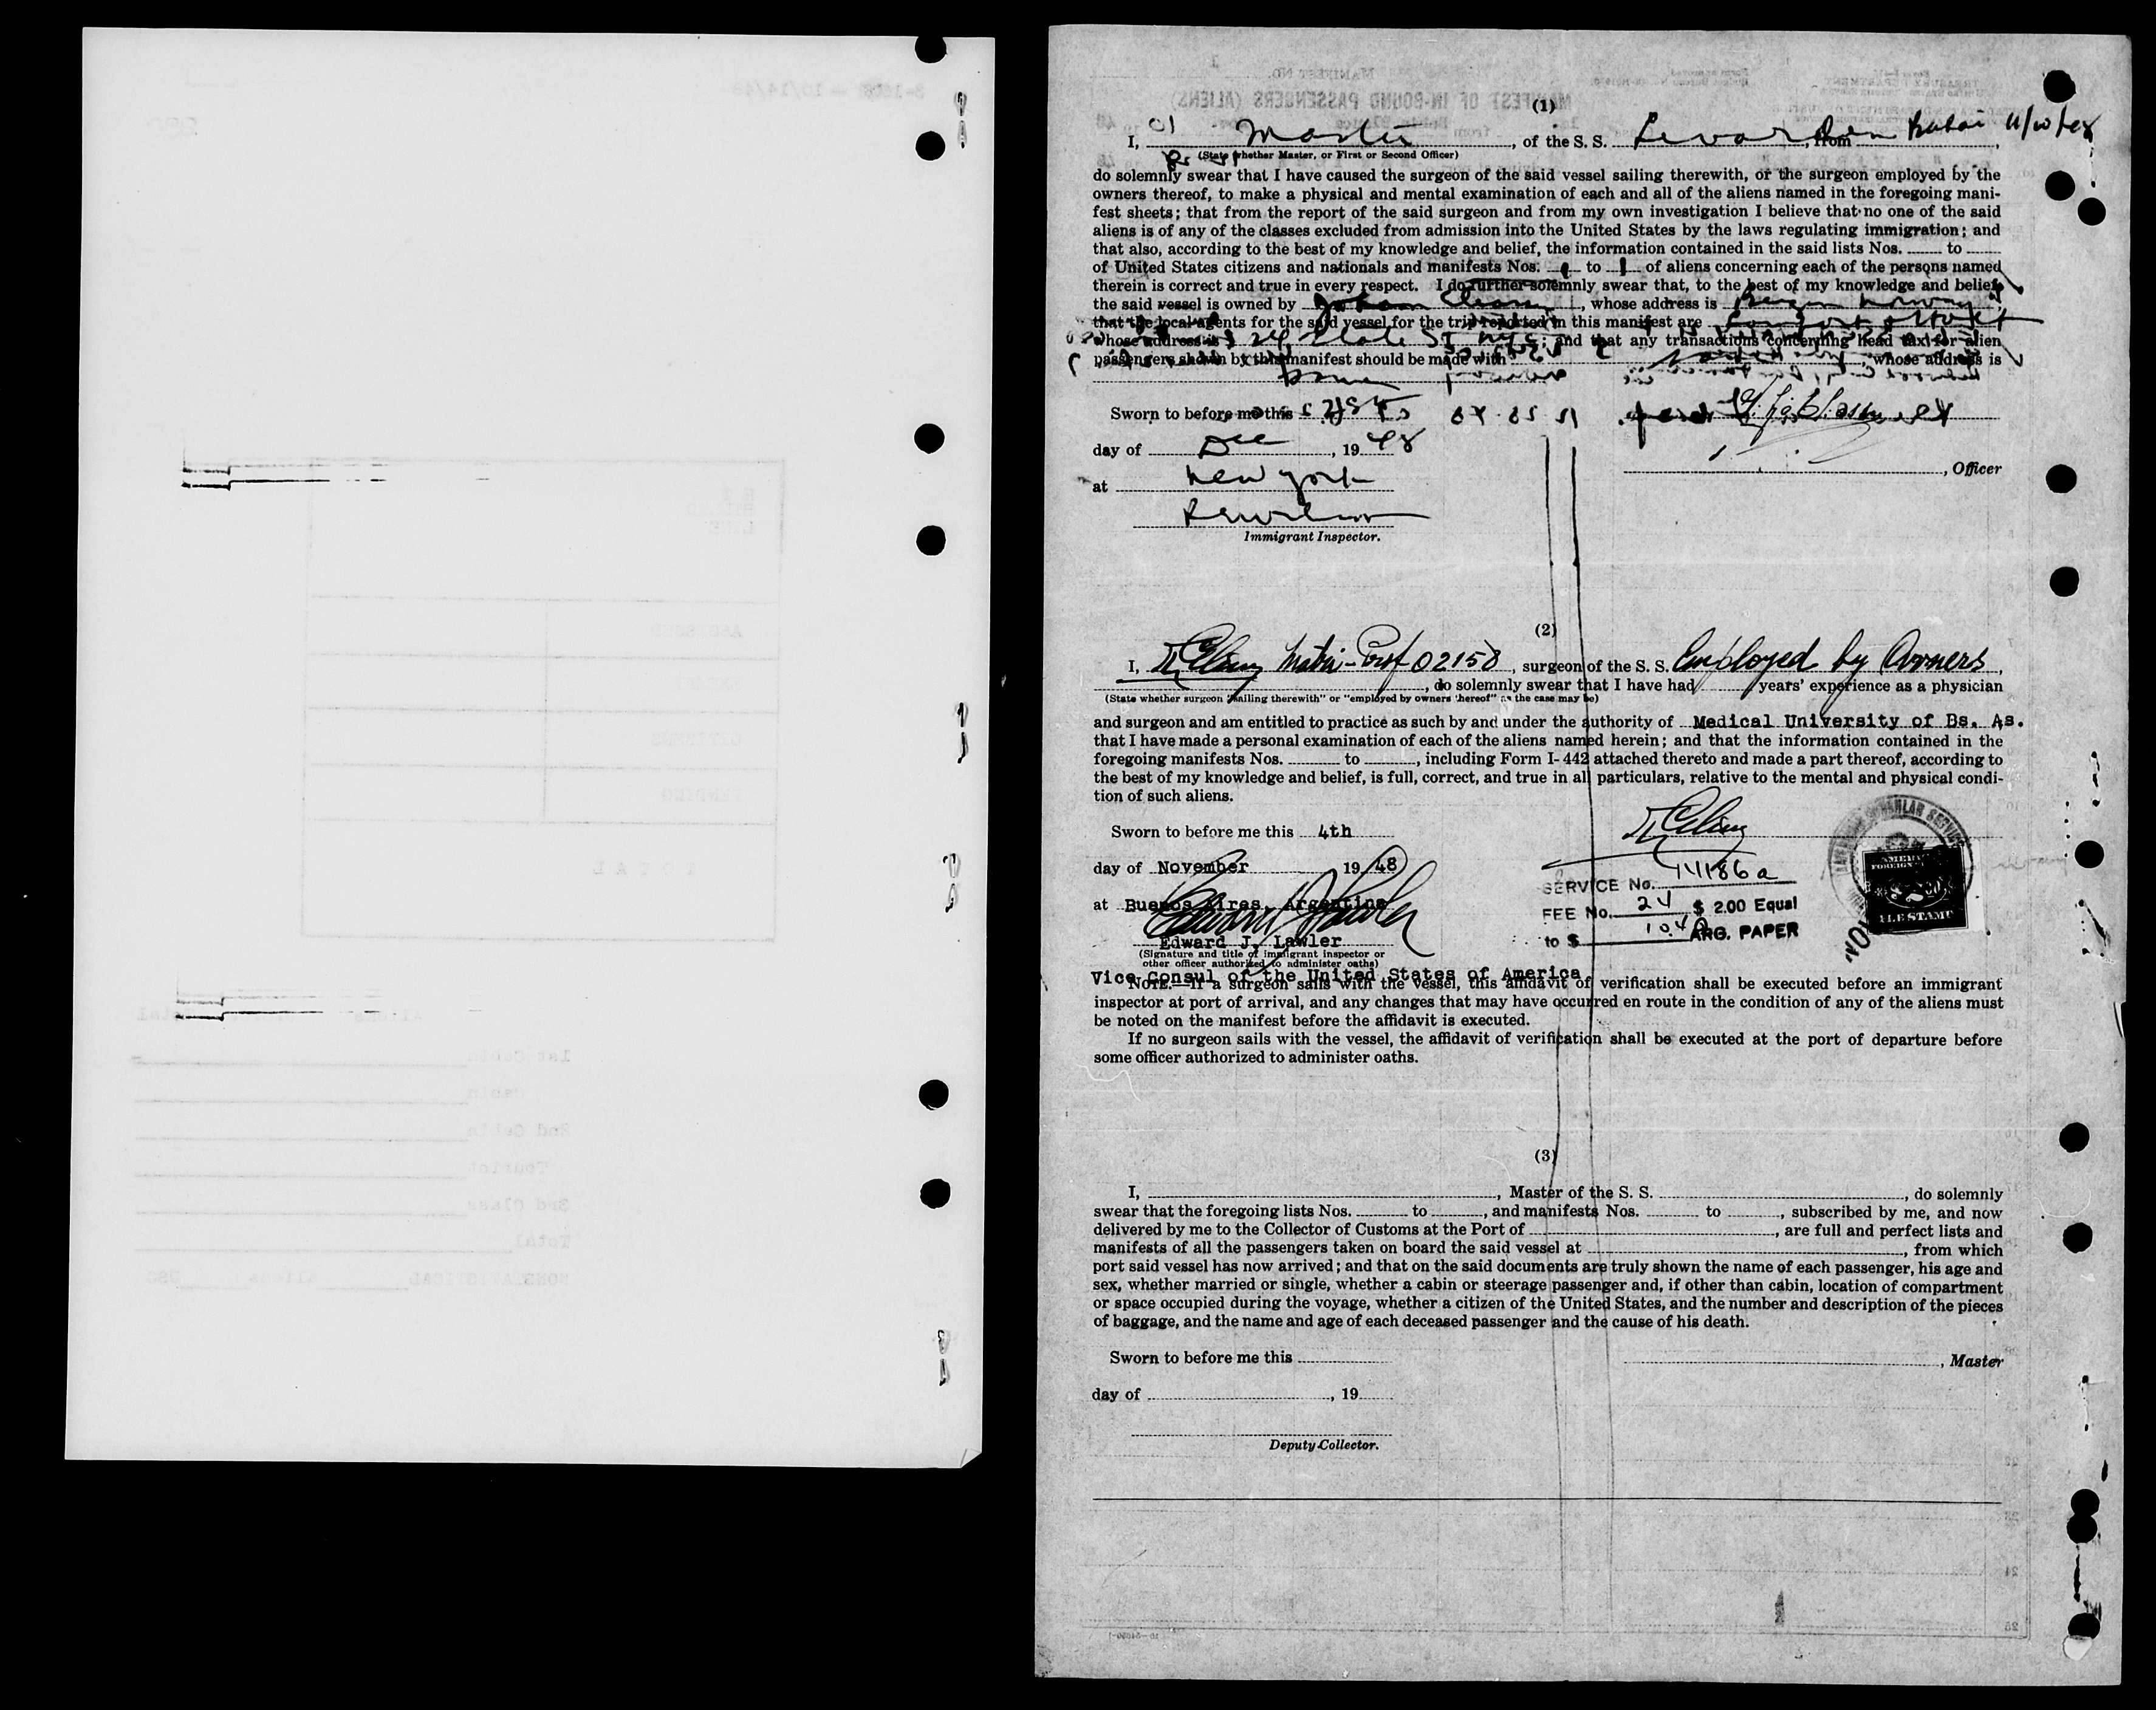 (1)
I, Master, of the S. S. , from
(State whether Master, or First or Second Officer)
do solemnly swear that I have caused the surgeon of the said vessel sailing therewith, or the surgeon employed by the
owners thereof, to make a physical and mental examination of each and all of the aliens named in the foregoing mani-
fest sheets; that from the report of the said surgeon and from my own investigation I believe that no one of the said
aliens is of any of the classes excluded from admission into the United States by the laws regulating immigration; and
that also, according to the best of my knowledge and belief, the information contained in the said lists Nos. to
of United States citizens and nationals and manifests Nos. 1 to 1 of aliens concerning each of the persons named
therein is correct and true in every respect. I do further solemnly swear that, to the best of my knowledge and belief,
the said vessel is owned by , whose address is Bergen Norway,
that the local agents for the said vessel for the trip reported in this manifest are
whose address is 24 State St NYC; and that any transactions concerning head tax for alien
passengers shown by this manifest should be made with , whose address is
Same
Sworn to before me this
day of Dec, 1948
, Officer
at New York
Immigrant Inspector.
(2)
I, 02158, surgeon of the S. S. Employed by Owners,
, do solemnly swear that I have had years' experience as a physician
(State whether surgeon "sailing therewith" or "employed by owners thereof" as the case may be)
and surgeon and am entitled to practice as such by and under the authority of Medical University of Bs. As.
that I have made a personal examination of each of the aliens named herein; and that the information contained in the
foregoing manifests Nos. to , including Form I-442 attached thereto and made a part thereof, according to
the best of my knowledge and belief, is full, correct, and true in all particulars, relative to the mental and physical condi-
tion of such aliens.
Sworn to before me this 4th
day of November 19 48
SERVICE No. 14186a
at Buenos Aires, Argentina
FEE No. 24 $ 2.00 Equal
to $ 10.40 ARG. PAPER
Edward J. Lawler
(Signature and title of immigrant inspector or
other officer authorized to administer oaths)
Vice Consul of the United States of America
NOTE.—If a surgeon sails with the vessel, this affidavit of verification shall be executed before an immigrant
inspector at port of arrival, and any changes that may have occurred en route in the condition of any of the aliens must
be noted on the manifest before the affidavit is executed.
If no surgeon sails with the vessel, the affidavit of verification shall be executed at the port of departure before
some officer authorized to administer oaths.
(3)
I, , Master of the S. S. , do solemnly
swear that the foregoing lists Nos. to , and manifests Nos. to , subscribed by me, and now
delivered by me to the Collector of Customs at the Port of , are full and perfect lists and
manifests of all the passengers taken on board the said vessel at , from which
port said vessel has now arrived; and that on the said documents are truly shown the name of each passenger, his age and
sex, whether married or single, whether a cabin or steerage passenger and, if other than cabin, location of compartment
or space occupied during the voyage, whether a citizen of the United States, and the number and description of the pieces
of baggage, and the name and age of each deceased passenger and the cause of his death.
Sworn to before me this
, Master
day of , 19
Deputy Collector.